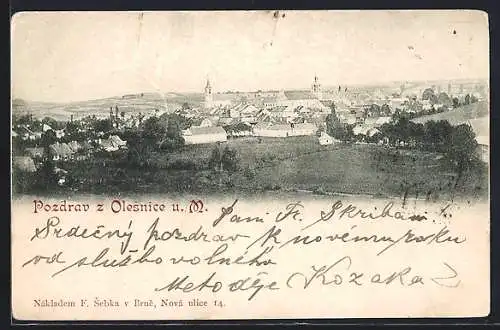 Pozdrav z Olešnice u. M.
Paní Fr. Skribani
Srdečný pozdrav k novému roku
od službo volného
Metoděje Kozaka
Nákladem F. Šebka v Brně, Nová ulice 14.